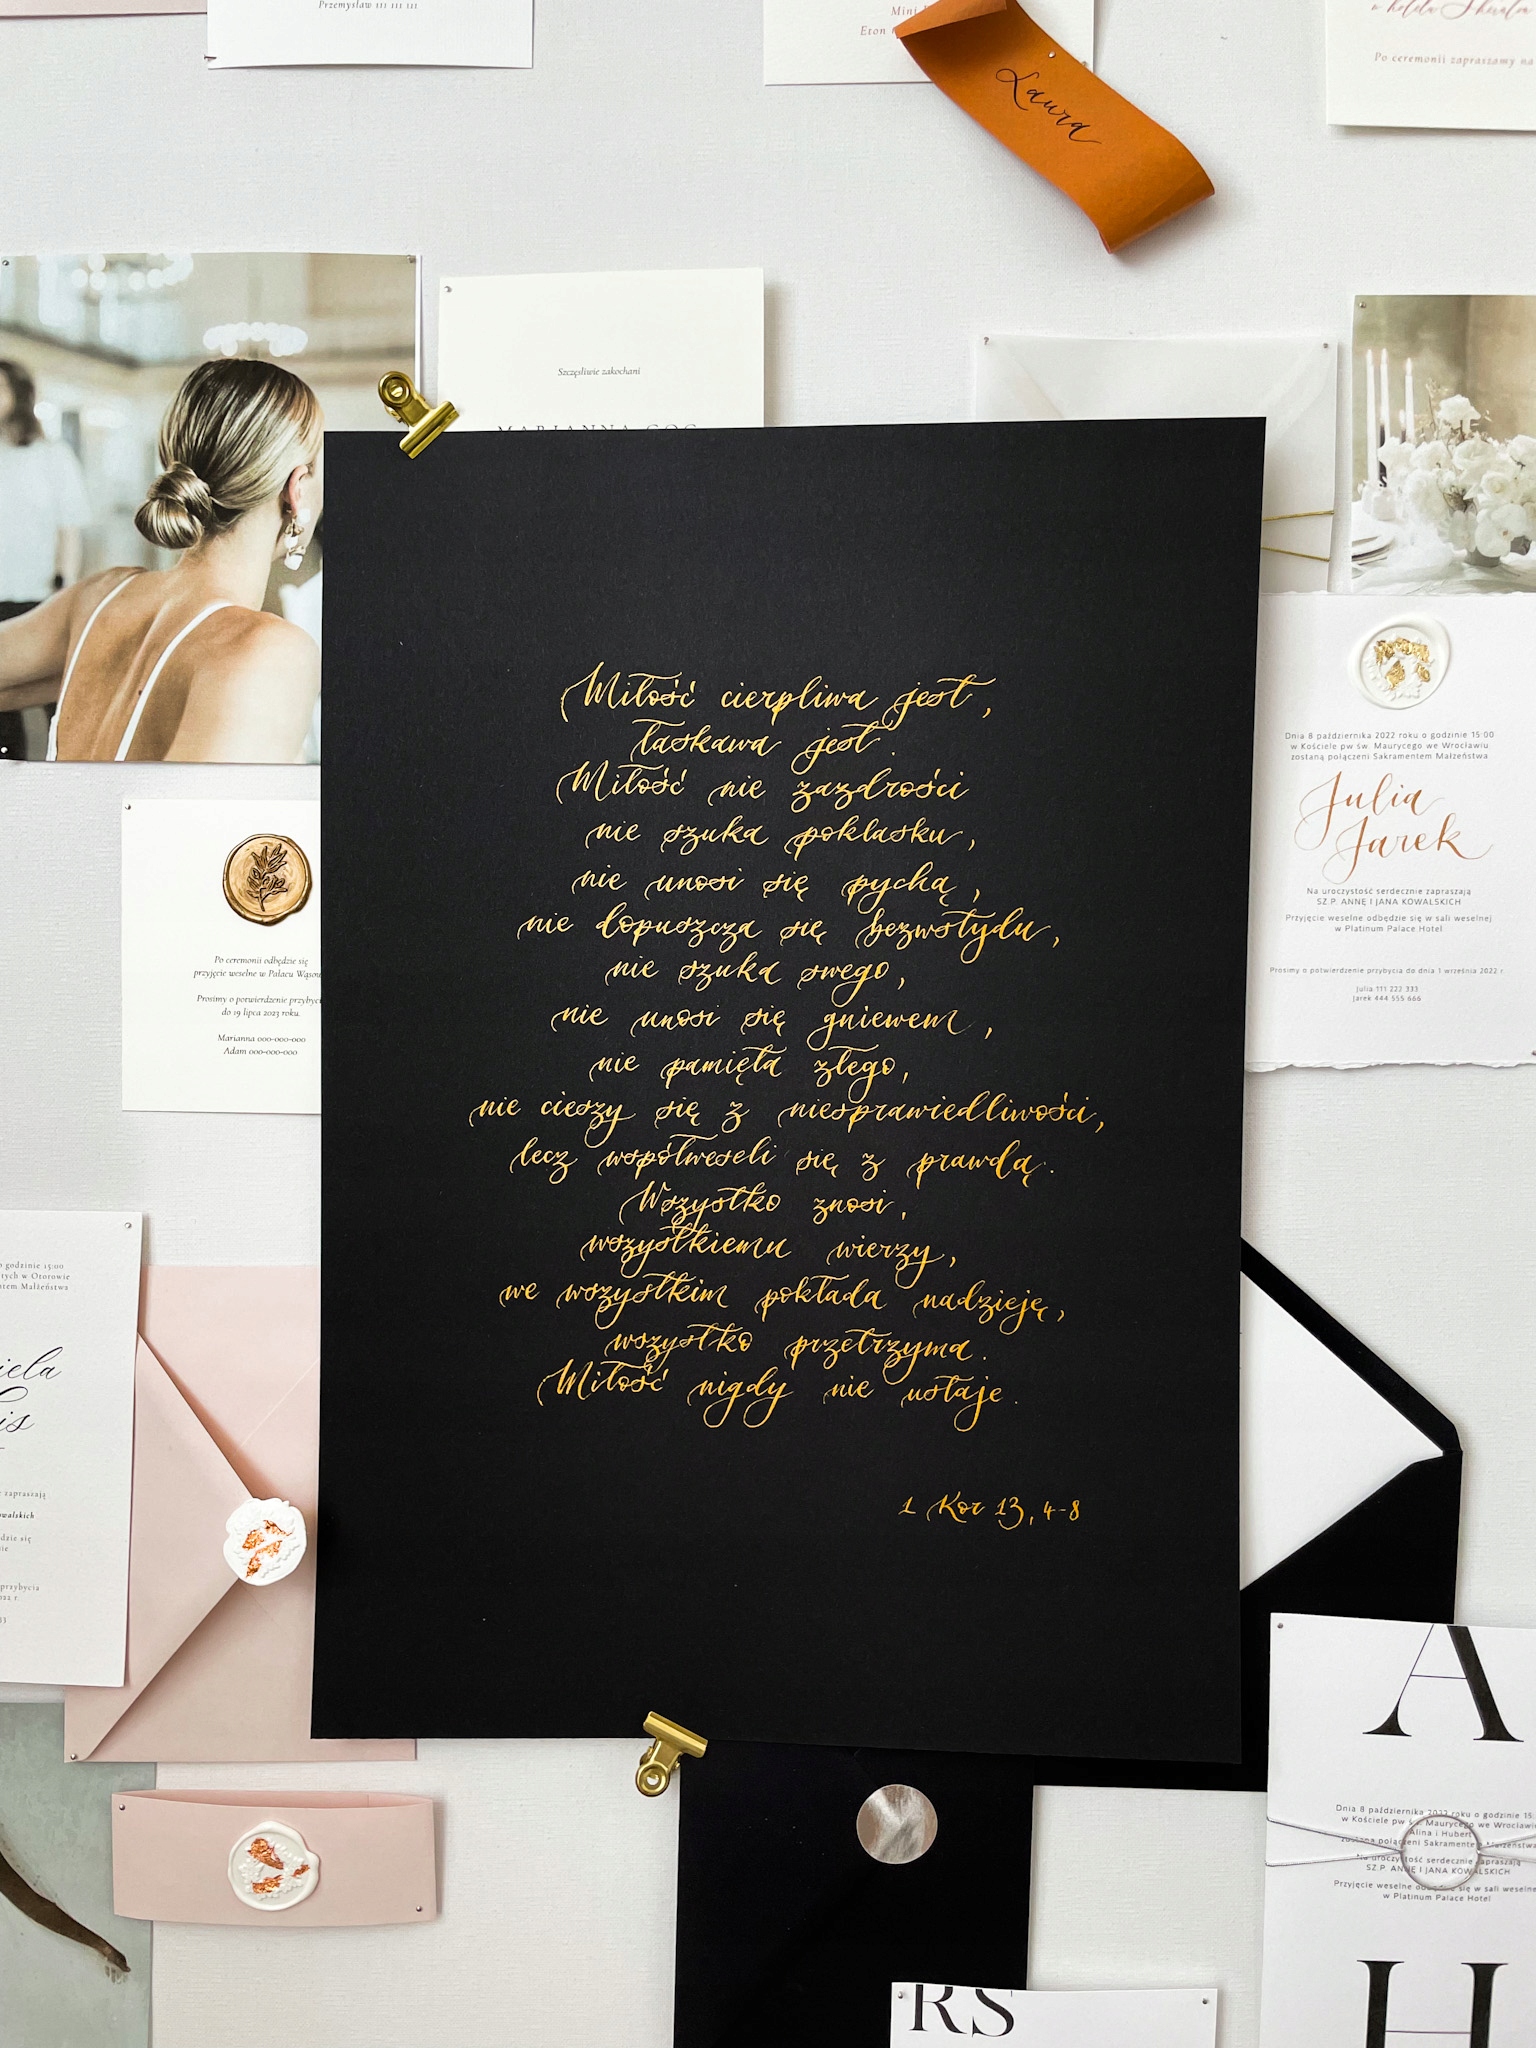 Przemysław 111 111 111
Mini
Po ceremonii zapraszamy na
Laura
Szczęśliwie zakochani
Miłość cierpliwa jest,
łaskawa jest.
Miłość nie zazdrości
nie szuka poklasku,
nie unosi się pychą,
nie dopuszcza się bezwstydu,
nie szuka swego,
nie unosi się gniewem,
nie pamięta złego,
nie cieszy się z niesprawiedliwości,
lecz współweseli się z prawdą.
Wszystko znosi,
wszystkiemu wierzy,
we wszystkim pokłada nadzieję,
wszystko przetrzyma.
Miłość nigdy nie ustaje.
1 Kor 13, 4-8
Dnia 8 października 2022 roku o godzinie 15:00
w Kościele pw św. Maurycego we Wrocławiu
zostaną połączeni Sakramentem Małżeństwa
Julia
Jarek
Na uroczystość serdecznie zapraszają
SZ.P. ANNĘ I JANA KOWALSKICH
Przyjęcie weselne odbędzie się w sali weselnej
w Platinum Palace Hotel
Prosimy o potwierdzenie przybycia do dnia 1 września 2022 r
Julia 111 222 333
Jarek 444 555 666
Po ceremonii odbędzie się
przyjęcie weselne w Pałacu
Prosimy o potwierdzenie
do 19 lipca 2023 roku.
Marianna 000-000-000
Adam 000-000-000
o godzinie 15:00
w Otorowie
Małżeństwa
zapraszają
się
przybycia
A
Dnia 8 października 2022 roku o godzinie
w Kościele pw św. Maurycego we
Alina i Hubert
zostaną połączeni Sakramentem Małżeństwa
Na uroczystość serdecznie zapraszają
SZ.P. ANNĘ I JANA KOWALSKICH
Przyjęcie weselne odbędzie się w sali weselnej
w Platinum Palace Hotel
H
RS